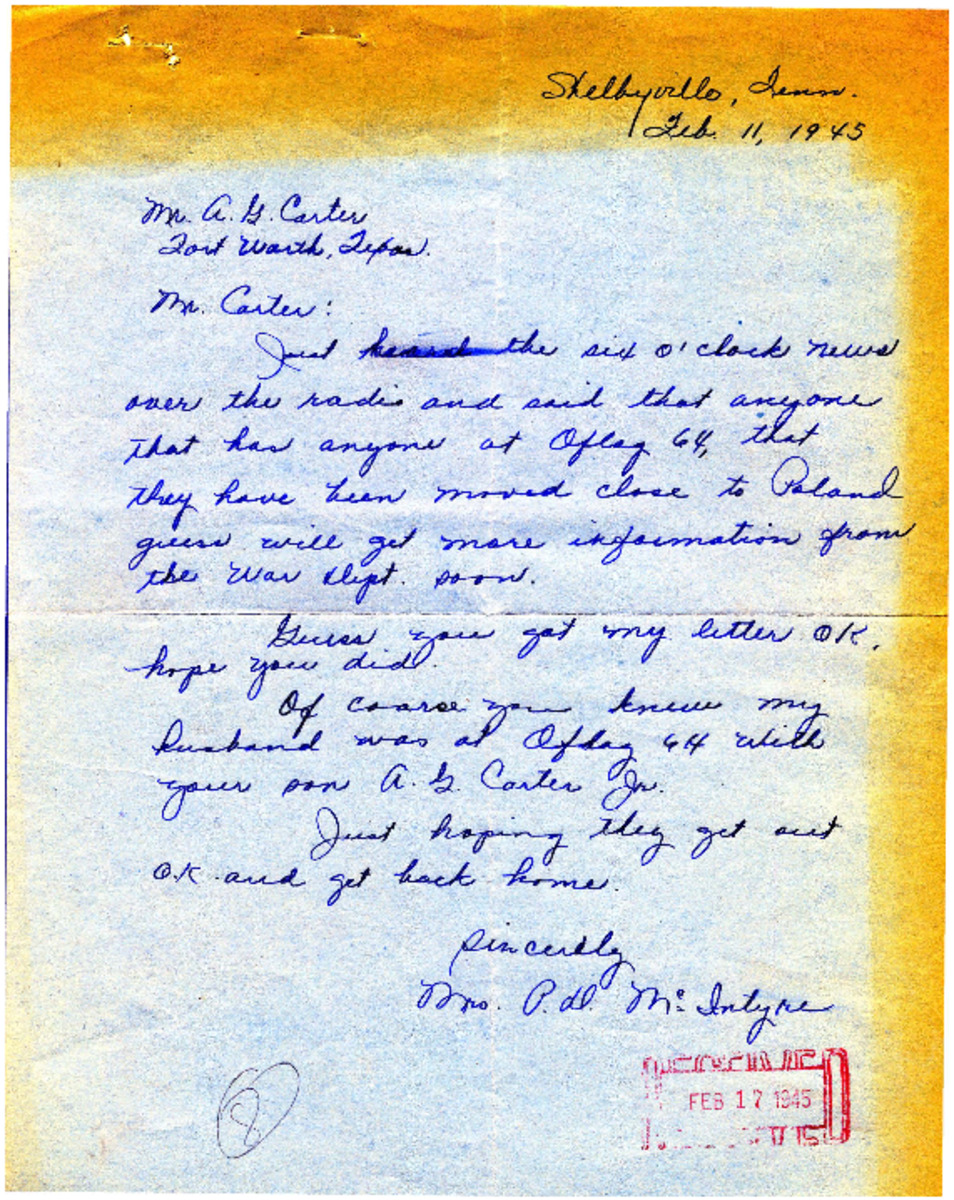 Shelbyville, Tenn.
Feb. 11, 1945
Mr. A. G. Carter
Fort Worth, Texas.
Mr. Carter:
Just heard the six o'clock news
over the radio and said that anyone
that has anyone at Oflag 64, that
they have been moved close to Poland
guess will get more information from
the War Dept. soon.
Guess you got my letter OK,
hope you did.
Of coarse you knew my
husband was at Oflag 64 with
your son A. G. Carter Jr.
Just hoping they get out
O.K. and get back home.
Sincerely
Mrs. P. D. McIntyre
FEB 17 1945
8